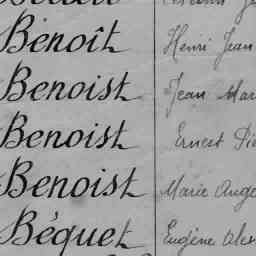 Benoît Henri Jean
Benoist Jean Mar
Benoist Ernest
Benoist Marie Ange
Béquet Eugène Alex